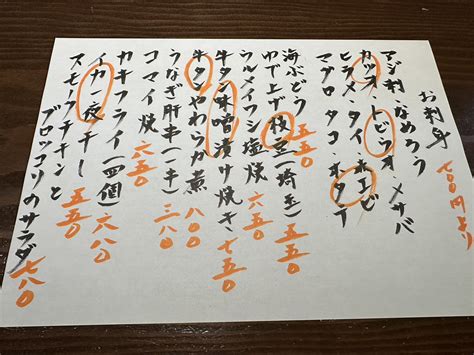 お刺身 七〇〇円より
マジ刺・なめろう
カツオ・トビウオ・メサバ
ヒラメ・タイ・ホエビ
マグロ・タコ・ホタテ
海ぶどう 五五〇
ゆで上げ枝豆(埼玉)五五〇
ウルメイワシ塩焼 六五〇
牛タン味噌漬け焼き、七五〇
牛タンやわらか煮 八〇〇
うなぎ肝串(一本)三八〇
コマイ焼 六五〇
カキフライ(四個)六八〇
イカ一夜干し 五五〇
スモークチキンと
ブロッコリのサラダ 七八〇